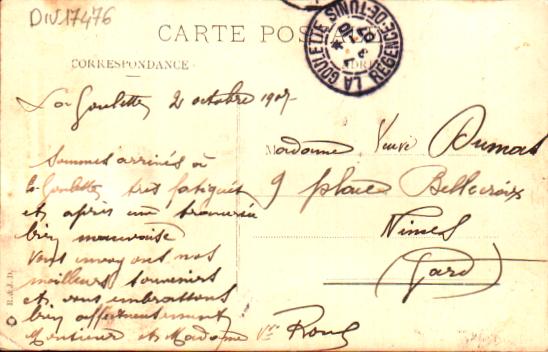 DIV17476
CARTE POSTALE
CORRESPONDANCE
LA GOULETTE
REGENCE-DE-TUNIS
La Goulette 2 octobre 1907
Madame Veuve Dumas
9 place Bellecroix
Nimes
(Gard)
Sommes arrivés à
la Goulette très fatigués
et après une traversée
bien mauvaise
Vous envoyons nos
meilleurs souvenirs
et vous embrassons
bien affectueusement
Monsieur et Madame
R. & J. D.